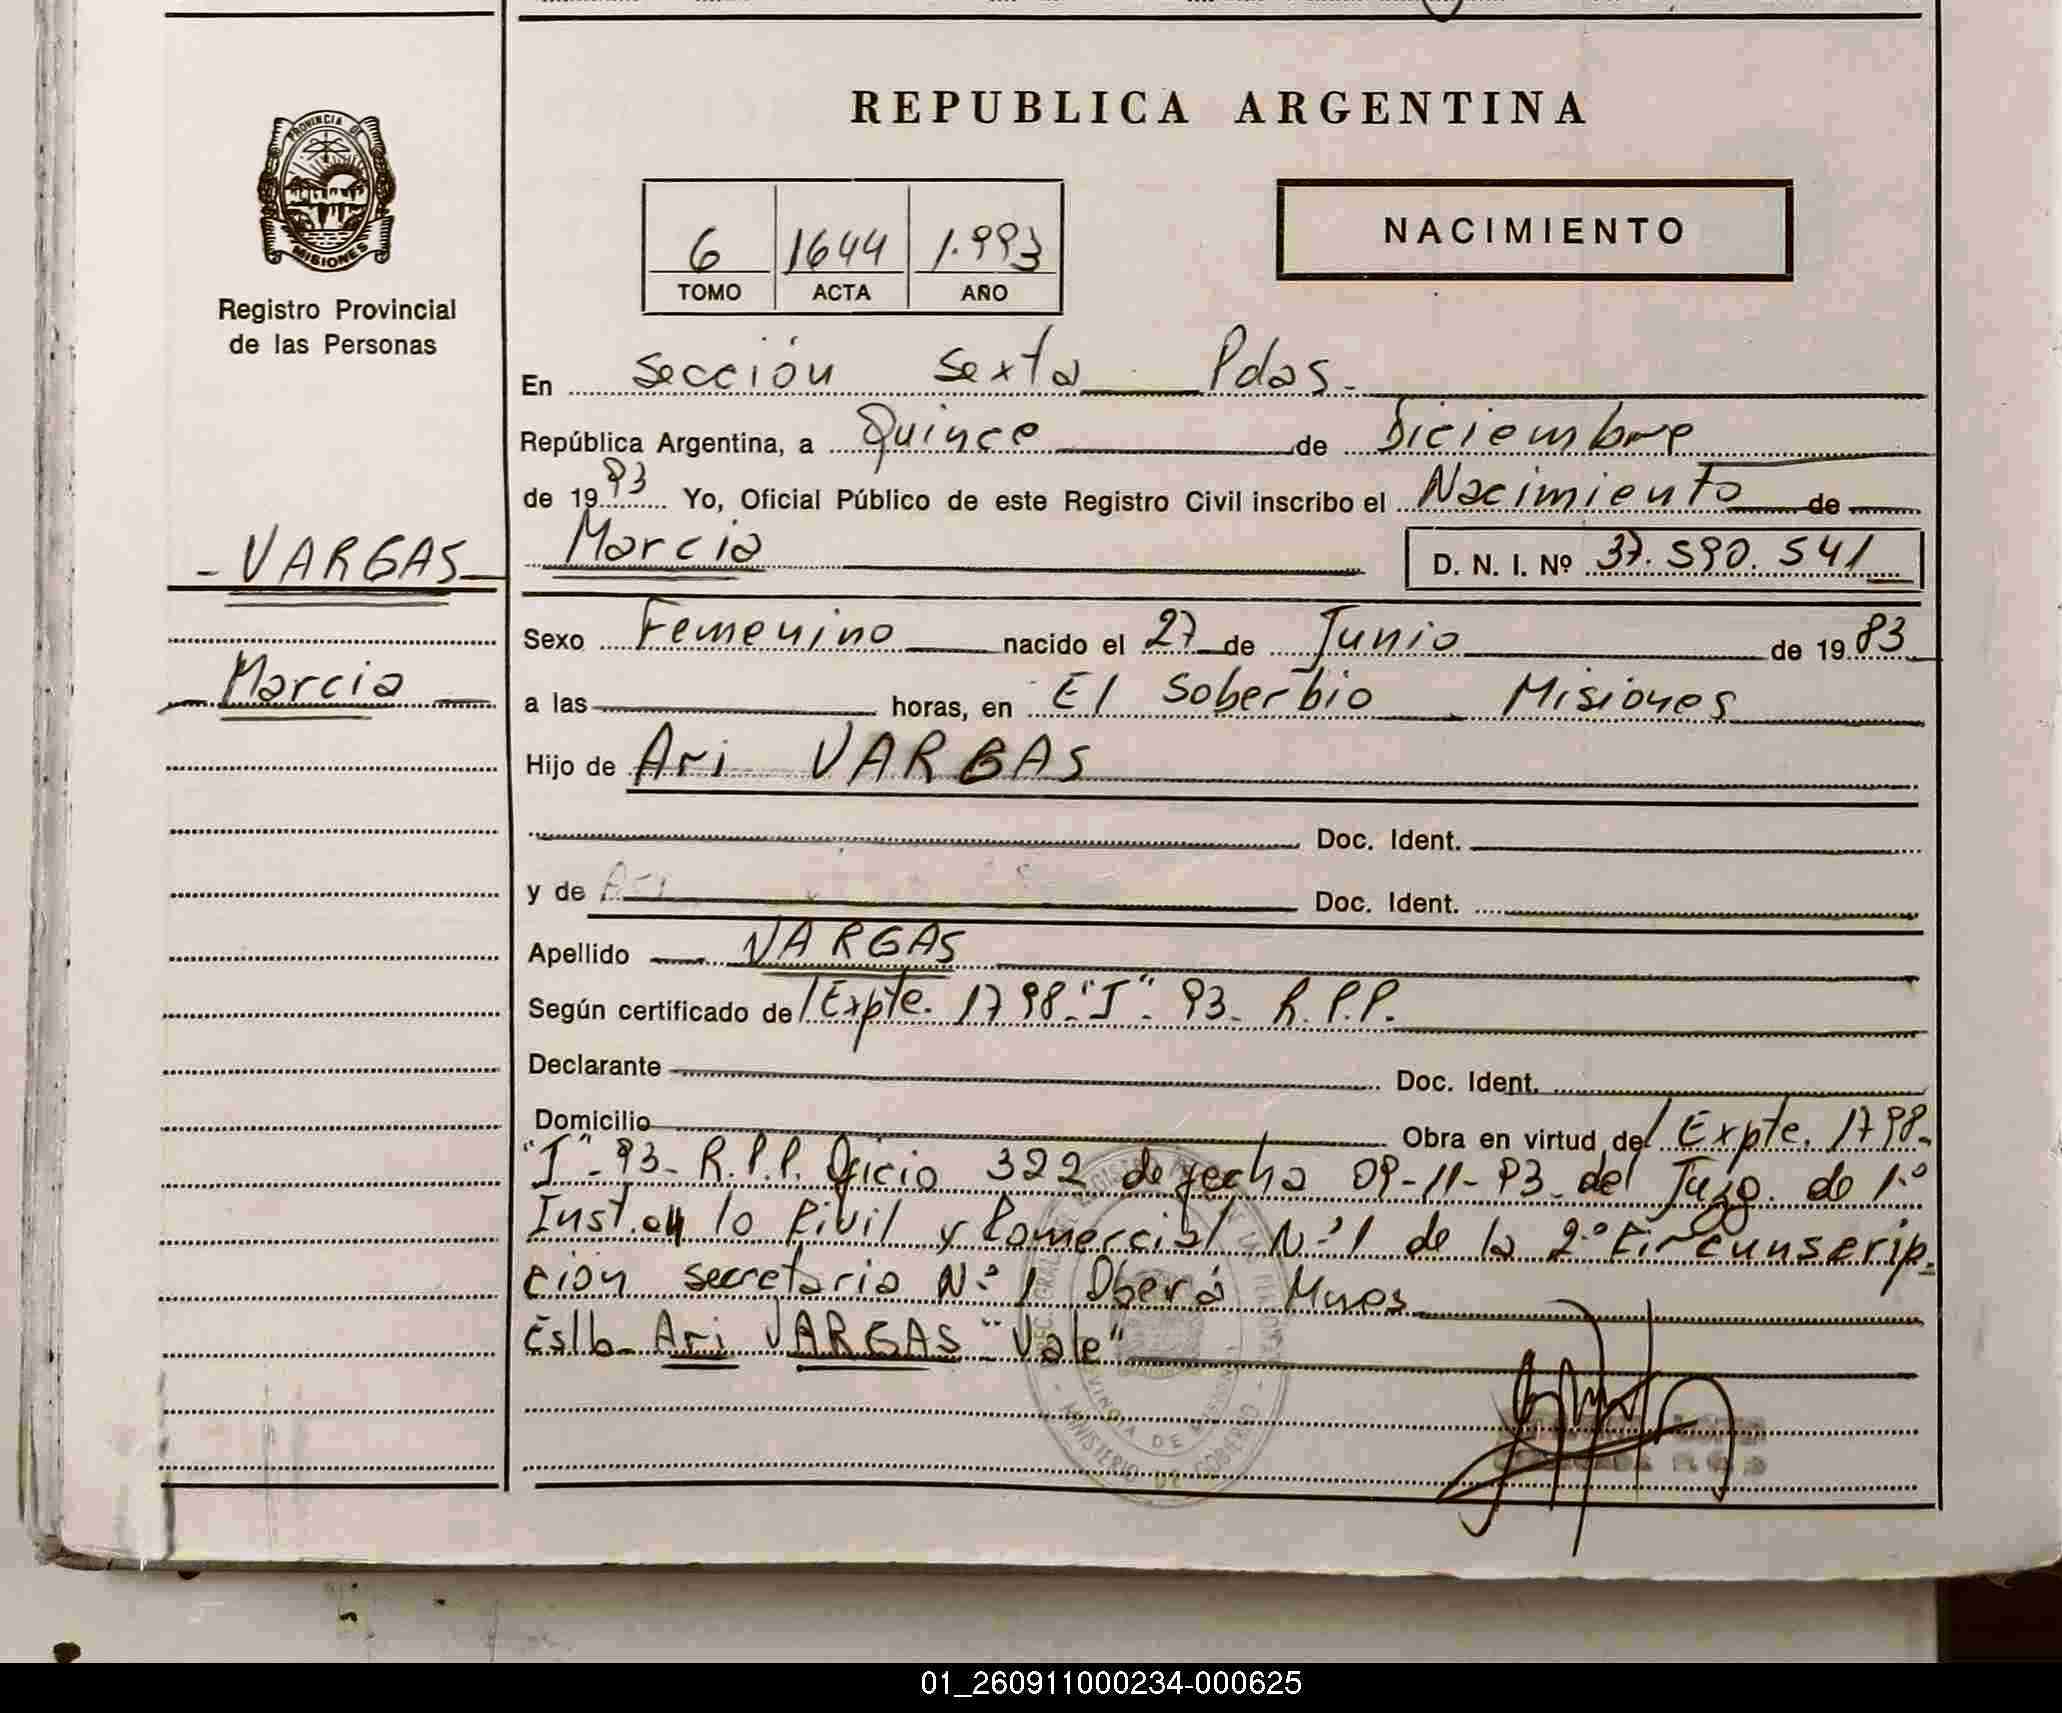 REPUBLICA ARGENTINA
PROVINCIA DE
MISIONES
Registro Provincial
de las Personas
6 1644 1.993
TOMO ACTA AÑO
NACIMIENTO
En Sección Sexta Pdas.
República Argentina, a Quince de Diciembre
de 1993 Yo, Oficial Público de este Registro Civil inscribo el Nacimiento de
- VARGAS -
Marcia
D. N. I. Nº 37.590.541
Sexo Femenino nacido el 27 de Junio de 1983
Marcia
a las horas, en El Soberbio Misiones
Hijo de Ari VARGAS
Doc. Ident.
y de Ari Doc. Ident.
Apellido VARGAS
Según certificado de / Expte. 1798-"J"-93- R.P.P.
Declarante Doc. Ident.
Domicilio Obra en virtud de / Expte. 1798-
"J"-93- R.P.P. Oficio 322 de fecha 09-11-93 del Juzg. de 1º
Inst. en lo Civil y Comercial Nº 1 de la 2º Circunscrip-
ción secretaria Nº 1 Oberá Mnes
Eslb- Ari VARGAS "Vale"
PROVINCIA DE MISIONES
MINISTERIO DE GOBIERNO
01_260911000234-000625